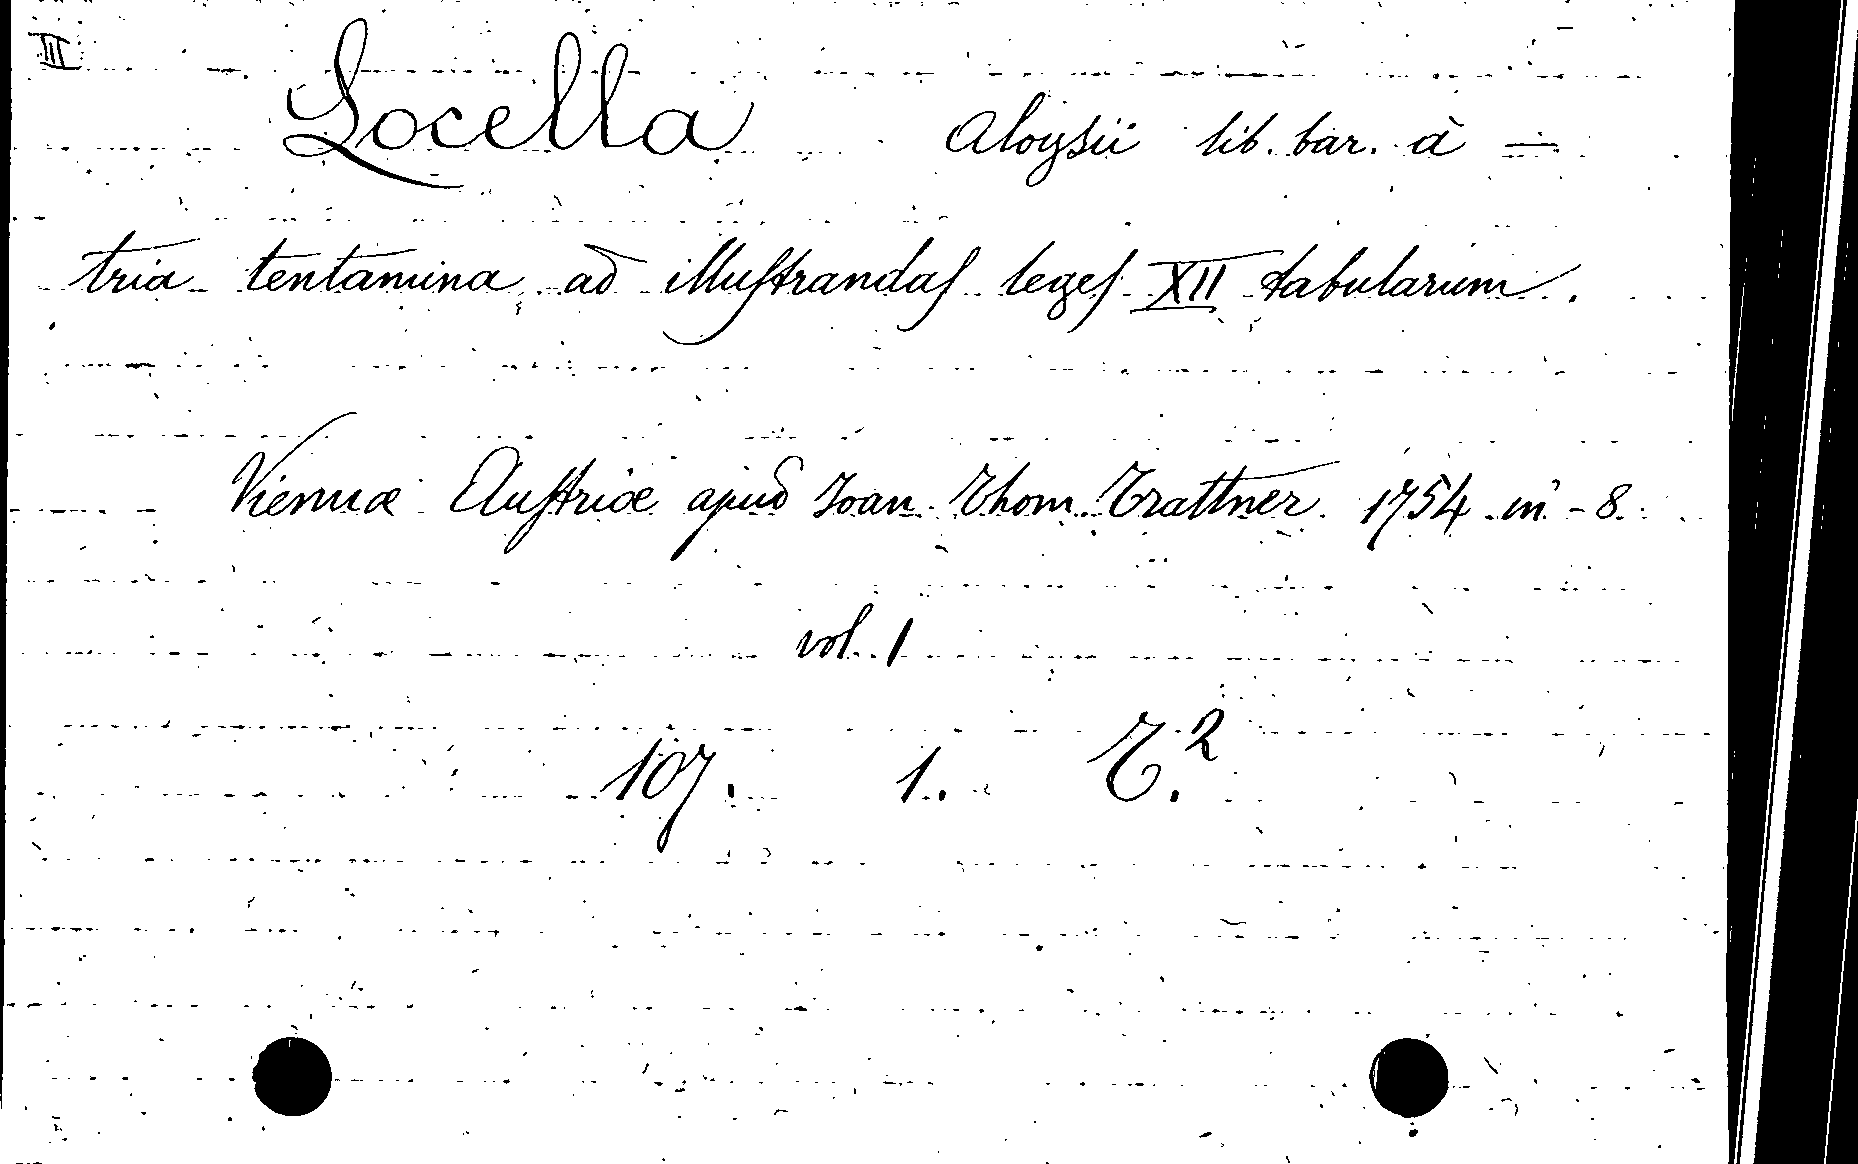 III
Locella Aloysii lib. bar. à —
tria tentamina ad illuſtrandaſ legeſ XII tabularum.
Viennæ Auſtriæ apud Joan. Thom. Trattner. 1754 in - 8.
vol. 1
107. 1. T.²